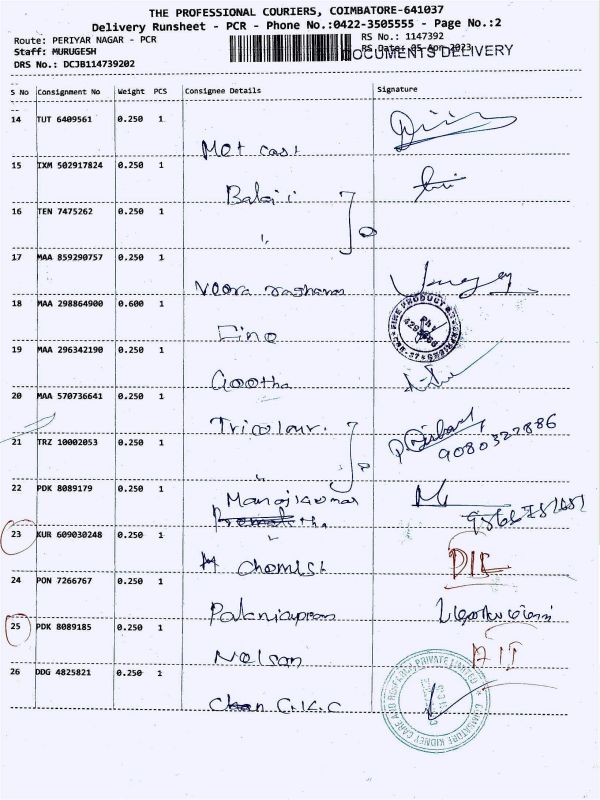 THE PROFESSIONAL COURIERS, COIMBATORE-641037
Delivery Runsheet - PCR - Phone No.:0422-3505555 - Page No.:2
Route: PERIYAR NAGAR - PCR
RS No.: 1147392
Staff: MURUGESH
RS Date: 05-Apr-2023
DOCUMENTS DELIVERY
DRS No.: DCJB114739202
S No Consignment No Weight PCS Consignee Details Signature
14 TUT 6409561 0.250 1
Met cast
15 IXM 502917824 0.250 1
Balaji
16 TEN 7475262 0.250 1
17 MAA 859290757 0.250 1
Veera
18 MAA 298864900 0.600 1
Fine
19 MAA 296342190 0.250 1
Gootha
20 MAA 570736641 0.250 1
Tricolour.
21 TRZ 10002053 0.250 1
9080322886
22 PDK 8089179 0.250 1
Manojkumar
23 KUR 609030248 0.250 1
Chemist
24 PON 7266767 0.250 1
25 PDK 8089185 0.250 1
Nelson
26 DDG 4825821 0.250 1
C.K.C